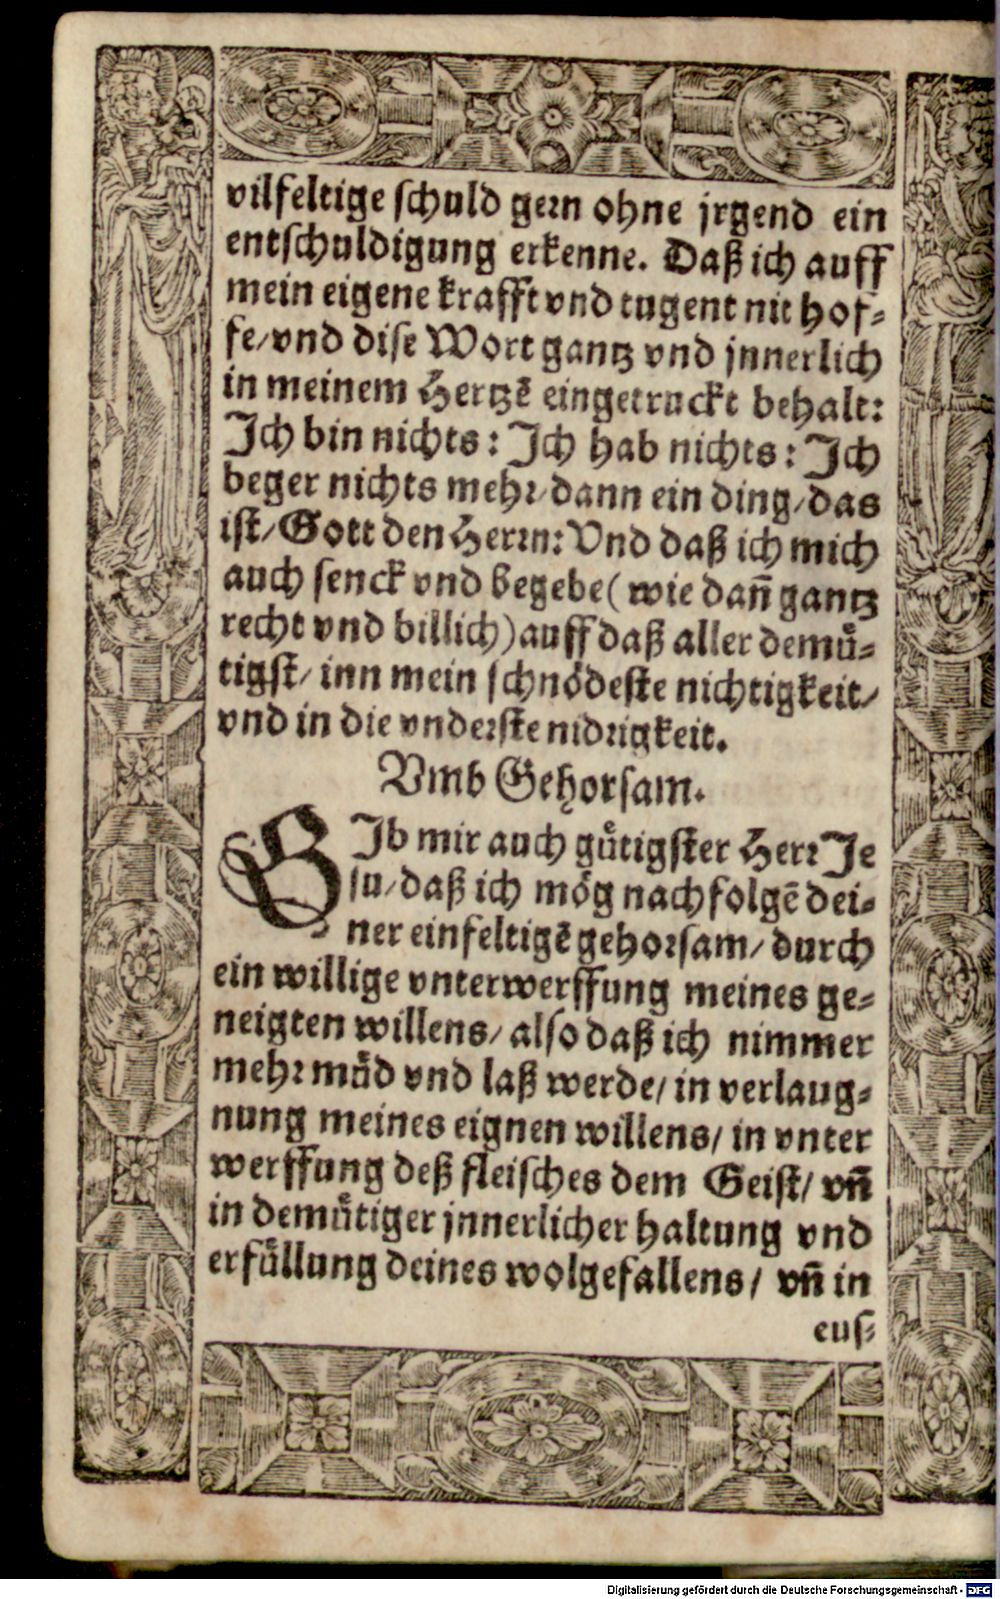 vilfeltige schuld gern ohne jrgend ein
entschuldigung erkenne. Daß ich auff
mein eigene krafft vnd tugent nit hof-
fe/vnd dise Wort gantz vnd jnnerlich
in meinem Hertzē eingetruckt behalt:
Ich bin nichts: Ich hab nichts: Ich
beger nichts mehr/dann ein ding/das
ist/Gott den Herrn: Vnd daß ich mich
auch senck vnd begebe (wie dañ gantz
recht vnd billich) auff daß aller demuͤ-
tigst/ inn mein schnoͤdeste nichtigkeit/
vnd in die vnderste nidrigkeit.
Vmb Gehorsam.
GIb mir auch guͤtigster Herr Je
su/daß ich moͤg nachfolgē dei-
ner einfeltigē gehorsam/ durch
ein willige vnterwerffung meines ge-
neigten willens/ also daß ich nimmer
mehr muͤd vnd laß werde/ in verlaug-
nung meines eignen willens/ in vnter
werffung deß fleisches dem Geist/ vñ
in demuͤtiger jnnerlicher haltung vnd
erfuͤllung deines wolgefallens/ vñ in
eus-
Digitalisierung gefördert durch die Deutsche Forschungsgemeinschaft - DFG